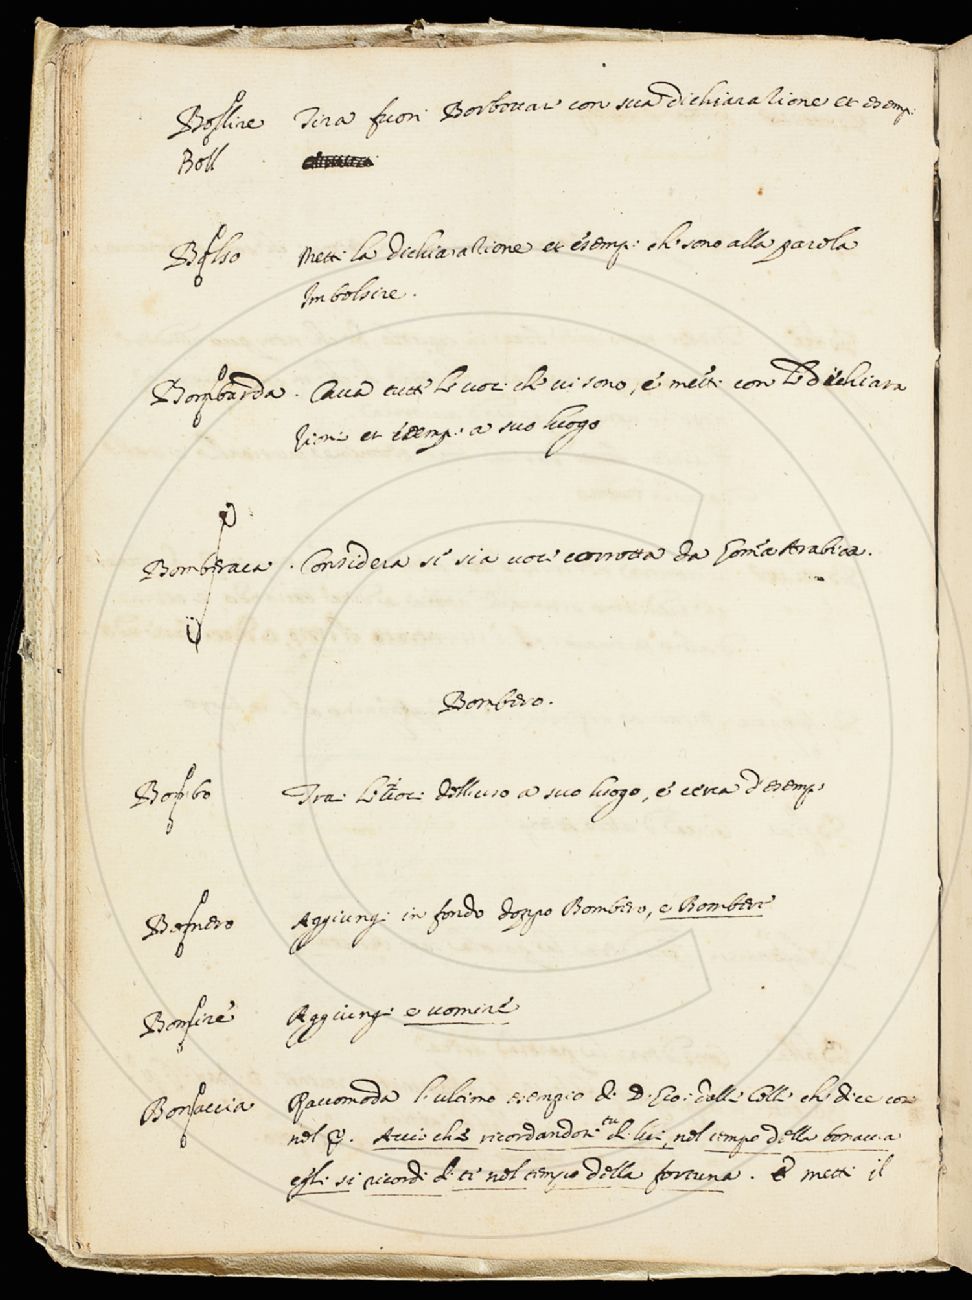 Bollire Tira fuori Borbottar con sua dichiaratione et esempi
Boll
Bolso Metti la dichiaratione et esempi che sono alla parola
Imbolsire.
Bombarda. Cava tutte le voci che vi sono, e metti con le dichiara
tioni et esempi a suo luogo
Bomberaca. Considera se sia voce corrotta da Gom̃a Arabica.
Bombero.
Bombo Trai le voci dell'uso a suo luogo, e cerca d'esempi
Bomero Aggiungi in fondo doppo Bombero, e Bombere
Bomire Aggiungi e vomire
Bonaccia Raccomoda l'ultimo esempio di D. Gio: dalle Celle che dice con
nel q. Acciò che ricordandoti tu di lui, nel tempo della bonaccia
egli si ricordi di te nel tempo della fortuna. E metti il